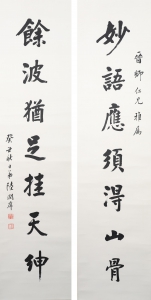 晉卿仁兄雅屬
妙語應須得山骨
餘波猶足挂天紳
癸丑秋日弟陸潤庠